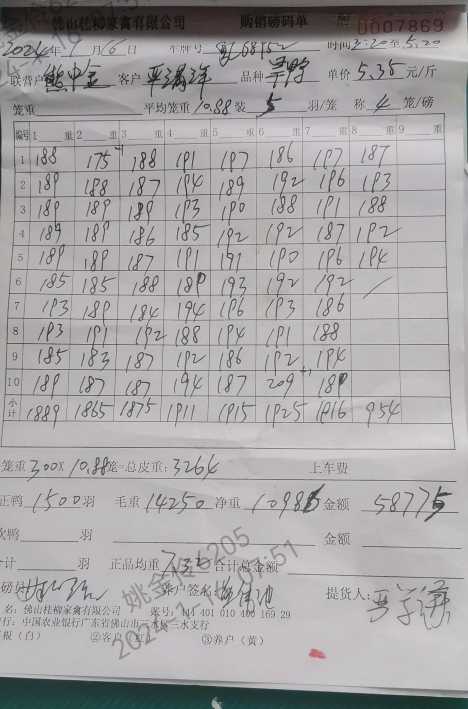 佛山桂柳家禽有限公司 购销磅码单 0007869
2024年9月6日 车牌号 时间2:20至5:20
联营户 熊中金 客户 品种 单价5.35元/斤
笼重 平均笼重10.88装5羽/笼 称4笼/磅
编号 1 重 2 重 3 重 4 重 5 重 6 重 7 重 8 重 9 重
1 188 175 188 191 197 186 197 187
2 189 188 187 194 189 192 196 193
3 189 189 189 193 190 188 191 188
4 189 189 186 185 192 192 187 192
5 189 189 187 191 191 190 196 194
6 185 185 188 189 193 192 192
7 193 189 184 194 196 193 186
8 193 191 192 188 194 191 188
9 185 183 187 192 186 192 194
10 189 187 187 194 187 209 189
小计 1889 1865 1875 1911 1915 1925 1916 954
笼重300X10.88笼=总皮重:3264 上车费
正鸭1500羽 毛重14250净重10986金额58775
次鸭 羽 金额
合计 羽 正品均重 合计总金额
磅员 养户签名 提货人:
名:佛山桂柳家禽有限公司 账号:444 401 010 400 169 29
行:中国农业银行广东省佛山市三水支行
(白) ②客户(红) ③养户(黄)